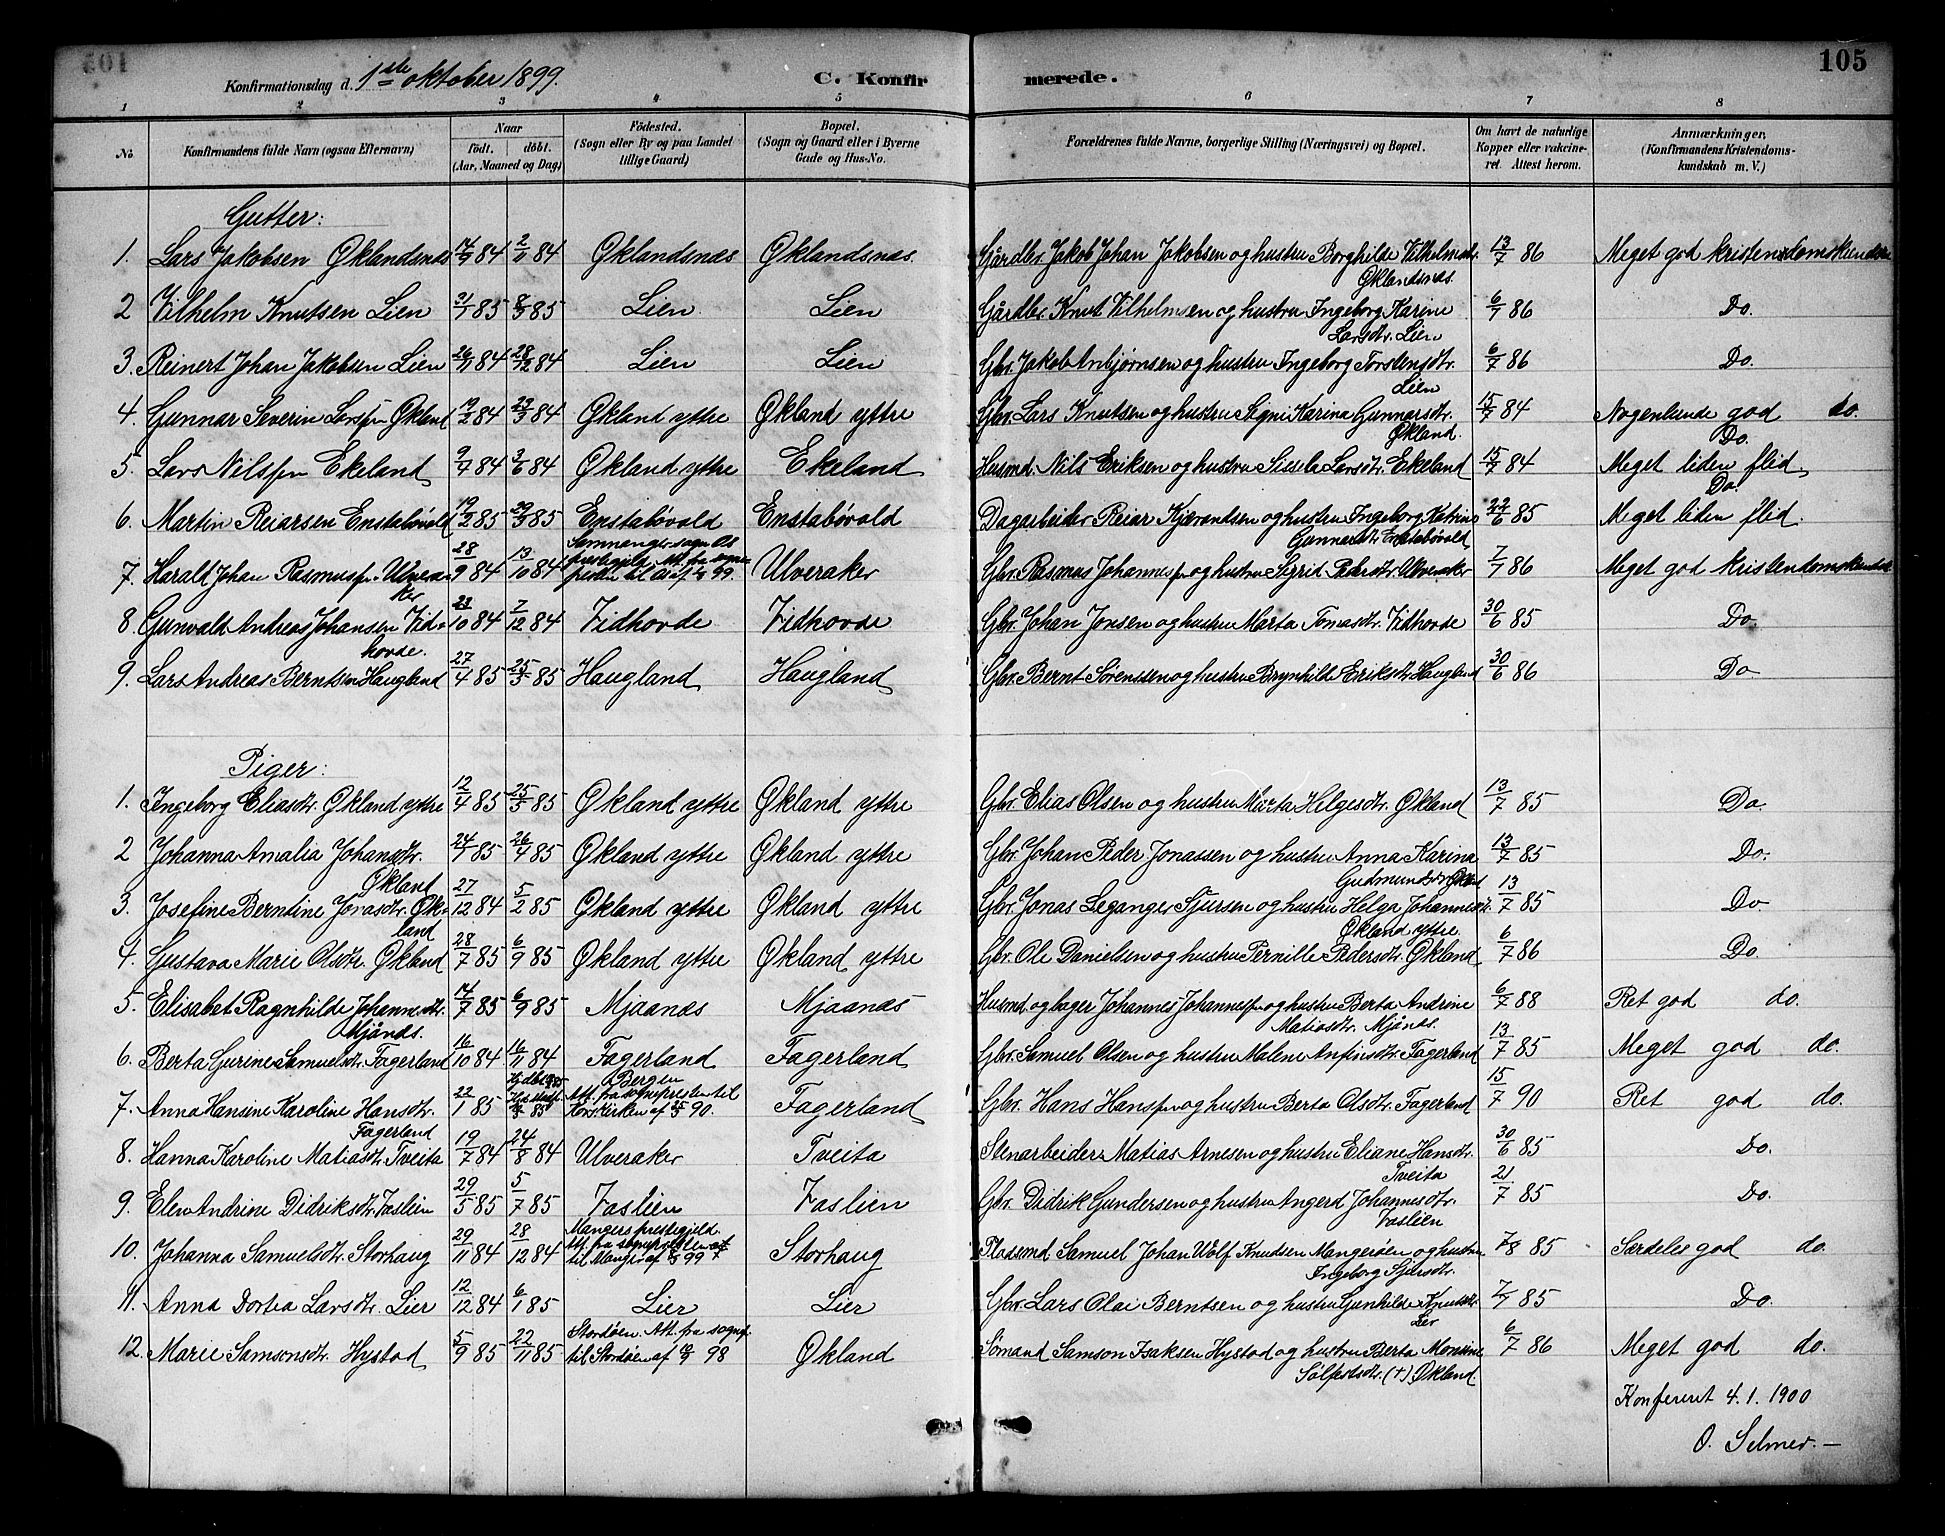 105
Konfirmationsdag d. 1ste oktober 1899.
C. Konfirmerede.
1 2 3 4 5 6 7 8
No. Konfirmandens fulde Navn (ogsaa Efternavn) Naar födt. döbt. (Aar, Maaned og Dag) Födested. (Sogn eller By og paa Landet tillige Gaard) Bopæl. (Sogn og Gaard eller i Byerne Gade og Hus-No. Forældrenes fulde Navne, borgerlige Stilling (Næringsvei) og Bopæl. Om havt de naturlige Kopper eller vakcineret. Attest herom. Anmærkninger, (Konfirmandens Kristendomskundskab m. V.)
Gutter:
1. Lars Jakobsen Øklandsnæs 84 2/11 84 Øklandsnæs Øklandsnæs. Gårdbr. Jakob Johan Jakobsen og hustru Borghilde Vilhelmsdtr. Øklandsnæs. 13/7 86 Meget god kristendomskundsk
2 Vilhelm Knutsen Lien 85 85 Lien Lien Gårdbr. Knut Vilhelmsen og hustru Ingeborg Karine Larsdtr. Lien 6/7 86 Do.
3. Reinert Johan Jakobsen Lien 26/11 84 28/12 84 Lien Lien Gbr. Jakob Anbjørnsen og hustru Ingeborg Torstensdtr. Lien 6/7 86 Do.
4. Gunnar Severin Larssen Økland 19/2 84 23/3 84 Økland yttre Økland yttre Gbr. Lars Knutsen og hustru Signi Karina Gunnarsdtr. Økland. 15/7 84 Nogenlunde god do.
5. Lars Nilssen Ekeland 84 84 Økland yttre Ekeland Husmd. Nils Eriksen og hustru Sissela Larsdtr. Ekeland 15/7 84 Do. Meget liden flid
6. Martin Reiarsen Enstabövold 19/2 85 29/3 85 Enstabövold Enstabövold Dagarbeider Reiar Kjærandsen og hustru Ingeborg Katrine Gunnarsdtr Enstabövold 22/6 85 Do. Meget liden flid.
7. Harald Johan Rasmussen Ulveraker 28/9 84 13/10 84 Samnanger sogn Os 99. Ulveraker Gbr. Rasmus Johannessen og hustru Sigrid Pedersdtr. Ulveraker 7/7 86 Meget god kristendomskundsk
8. Gunvald Andreas Johansen Vidhovde. 23/10 84 7/12 84 Vidhovde Vidhovde Gbr. Johan Jonsen og hustru Marta Tomasdtr. Vidhovde 30/6 85 Do.
9. Lars Andreas Berntsen Haugland 27/4 85 25/5 85 Haugland Haugland Gbr. Bernt Sörensen og hustru Brynhilde Eriksdtr Haugland 30/6 86 Do
Piger:
1. Ingeborg Eliasdtr. Økland yttre 12/4 85 25/5 85 Økland yttre Økland yttre Gbr. Elias Olsen og hustru Marta Helgesdtr. Økland 13/7 85 Do.
2 Johanna Amalia Johansdtr. Økland 24/1 85 26/4 85 Økland yttre Økland yttre Gbr. Johan Peder Jonassen og hustru Anna Karina Gudmundsdtr Økland 13/7 85 Do.
3. Josefine Berntine Jonasdtr. Økland 27/12 84 5/2 85 Økland yttre Økland yttre Gbr. Jonas Leganger Sjursen og hustru Helga Johannesdtr. Økland yttre. 13/7 85 Do
4. Gustava Marie Olsdtr. Økland 28/7 85 6/9 85 Økland yttre Økland yttre Gbr. Ole Danielsen og hustru Pernille Pedersdtr. Økland 6/7 86 Do.
5. Elisabet Ragnhilde Johannesdtr. Mjånes. 14/7 85 6/9 85 Mjaanæs Mjaanæs Husmd. og bager Johannes Johannessen og hustru Berta Andrine Matiasdtr. Mjånes. 6/7 88 Ret god do.
6. Berta Gurine Samuelsdtr. Fagerland 16/10 84. 16/11 84 Fagerland Fagerland Gbr. Samuel Olsen og hustru Malene Anfinsdtr. Fagerland 13/7 85 Meget god do.
7. Anna Hansine Karoline Hansdtr. Fagerland 22/1 85 85 Bergen Att. fra sognepresten til Korskirken af 90. Fagerland Gbr. Hans Hanssen og hustru Berta Olsdtr. Fagerland 15/7 90 Ret god do.
8. Hanna Karoline Matiasdtr. Tveita 19/7 84 24/8 84 Ulveraker Tveita Stenarbeider Matias Arnesen og hustru Eliane Hansdtr. Tveita 30/6 85 Do.
9. Elen Andrine Didriksdtr. Vaslien 29/5 85 5/7 85 Vaslien Vaslien Gbr. Didrik Gundersen og hustru Angerd Johannesdtr. Vaslien 21/7 85 Do.
10. Johanna Samuelsdtr. Storhaug 29/11 84 28/12 84 Mangers prestegjeld Att. fra til Manger af 99 Storhaug Pladsmd. Samuel Johan Wolf Knudsen Mangerøen og hustru Ingeborg Sjursdtr. 85 Særdeles god do.
11. Anna Dortea Larsdtr. Lier 12/12 84 6/1 85 Lier Lier Gbr. Lars Olai Berntsen og hustru Gunhilde Knutsdtr. Lier 7/7 85 Do.
12. Marie Samsonsdtr. Hystad 5/9 85 22/11 85 Stordøen. Att. fra sognep. til Stordøen af 98 Økland Sömand Samson Isaksen Hystad og hustru Berta Monsine Salfestsdtr. (+) Økland 6/7 86 Meget god do.
Konfereret 4.1.1900
O. Selmer.